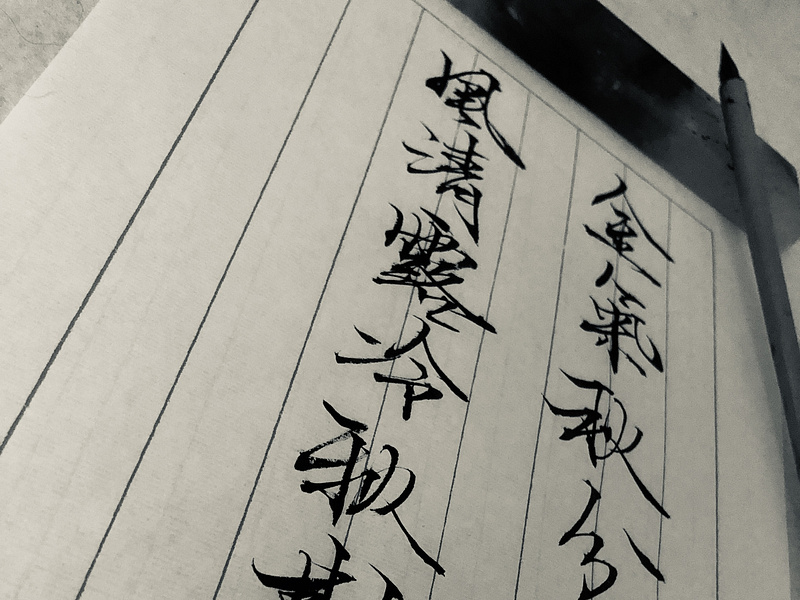 金氣秋分
風清露冷秋